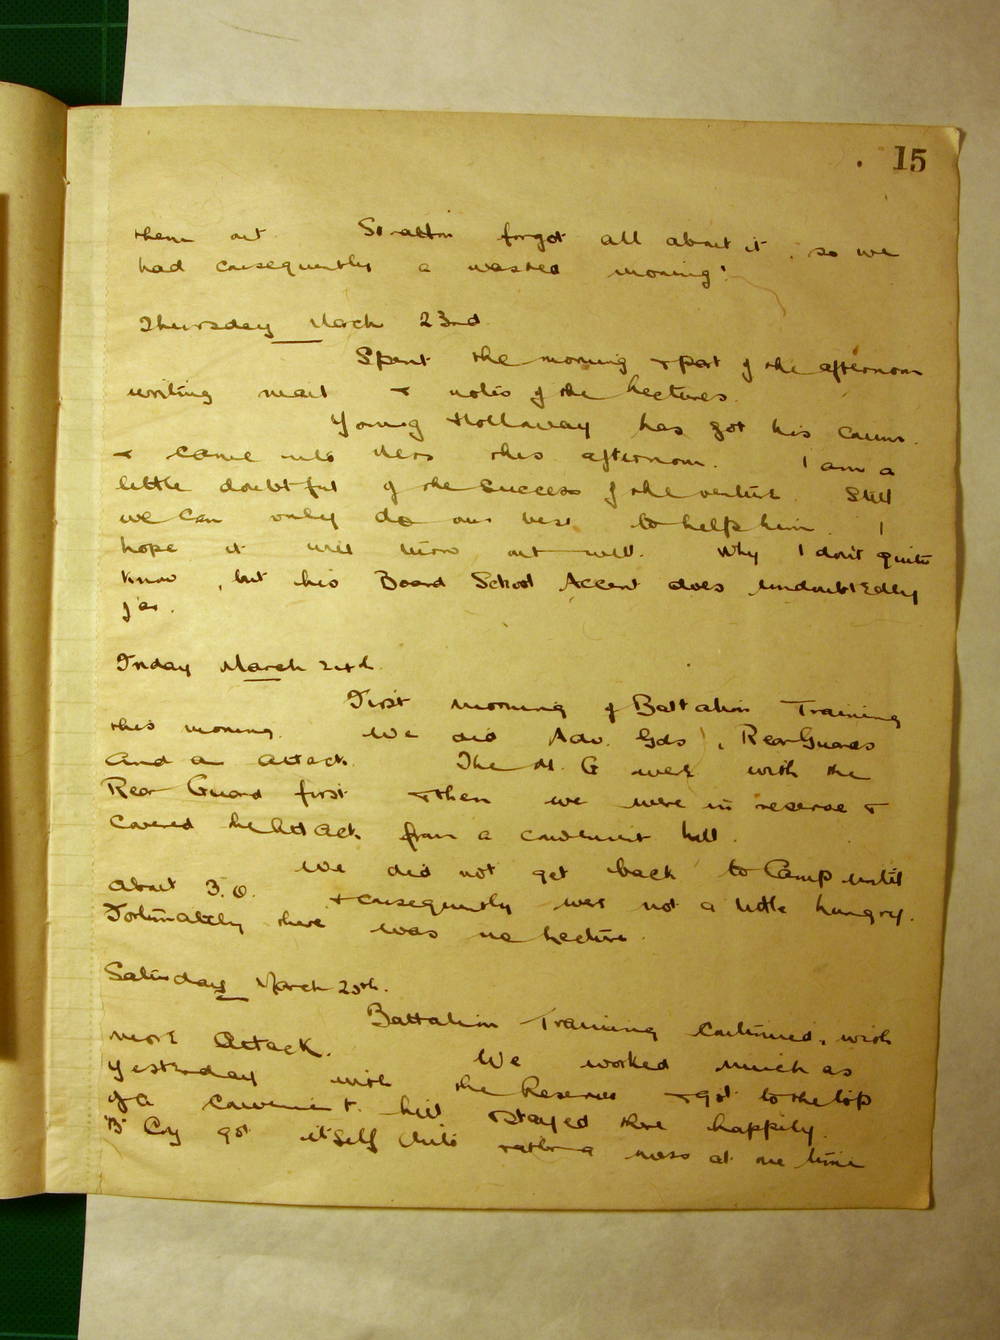 15
them out. Stratton forgot all about it, so we
had consequently a wasted morning!
Thursday March 23rd
Spent the morning & part of the afternoon
writing mail & notes of the lectures.
Young Holloway has got his comm.
& came into mess this afternoon. I am a
little doubtful of the success of the venture. Still
we can only do our best to help him. I
hope it will turn out well. Why I don't quite
know, but his Board School Accent does undoubtedly
jar.
Friday March 24th.
First morning of Battalion Training
this morning. We did Adv. Gds, Rear Guards
and an attack. The M. G were with the
Rear Guard first & then we were in reserve &
covered the Attack from a convenient hill.
We did not get back to Camp until
about 3.0. & consequently was not a little hungry.
Fortunately there was no lecture.
Saturday March 25th.
Battalion Training continued, with
more Attack. We worked much as
yesterday with the Reserve & got to the top
of a convenient hill & stayed there happily.
B Coy got itself into rather a mess at one time